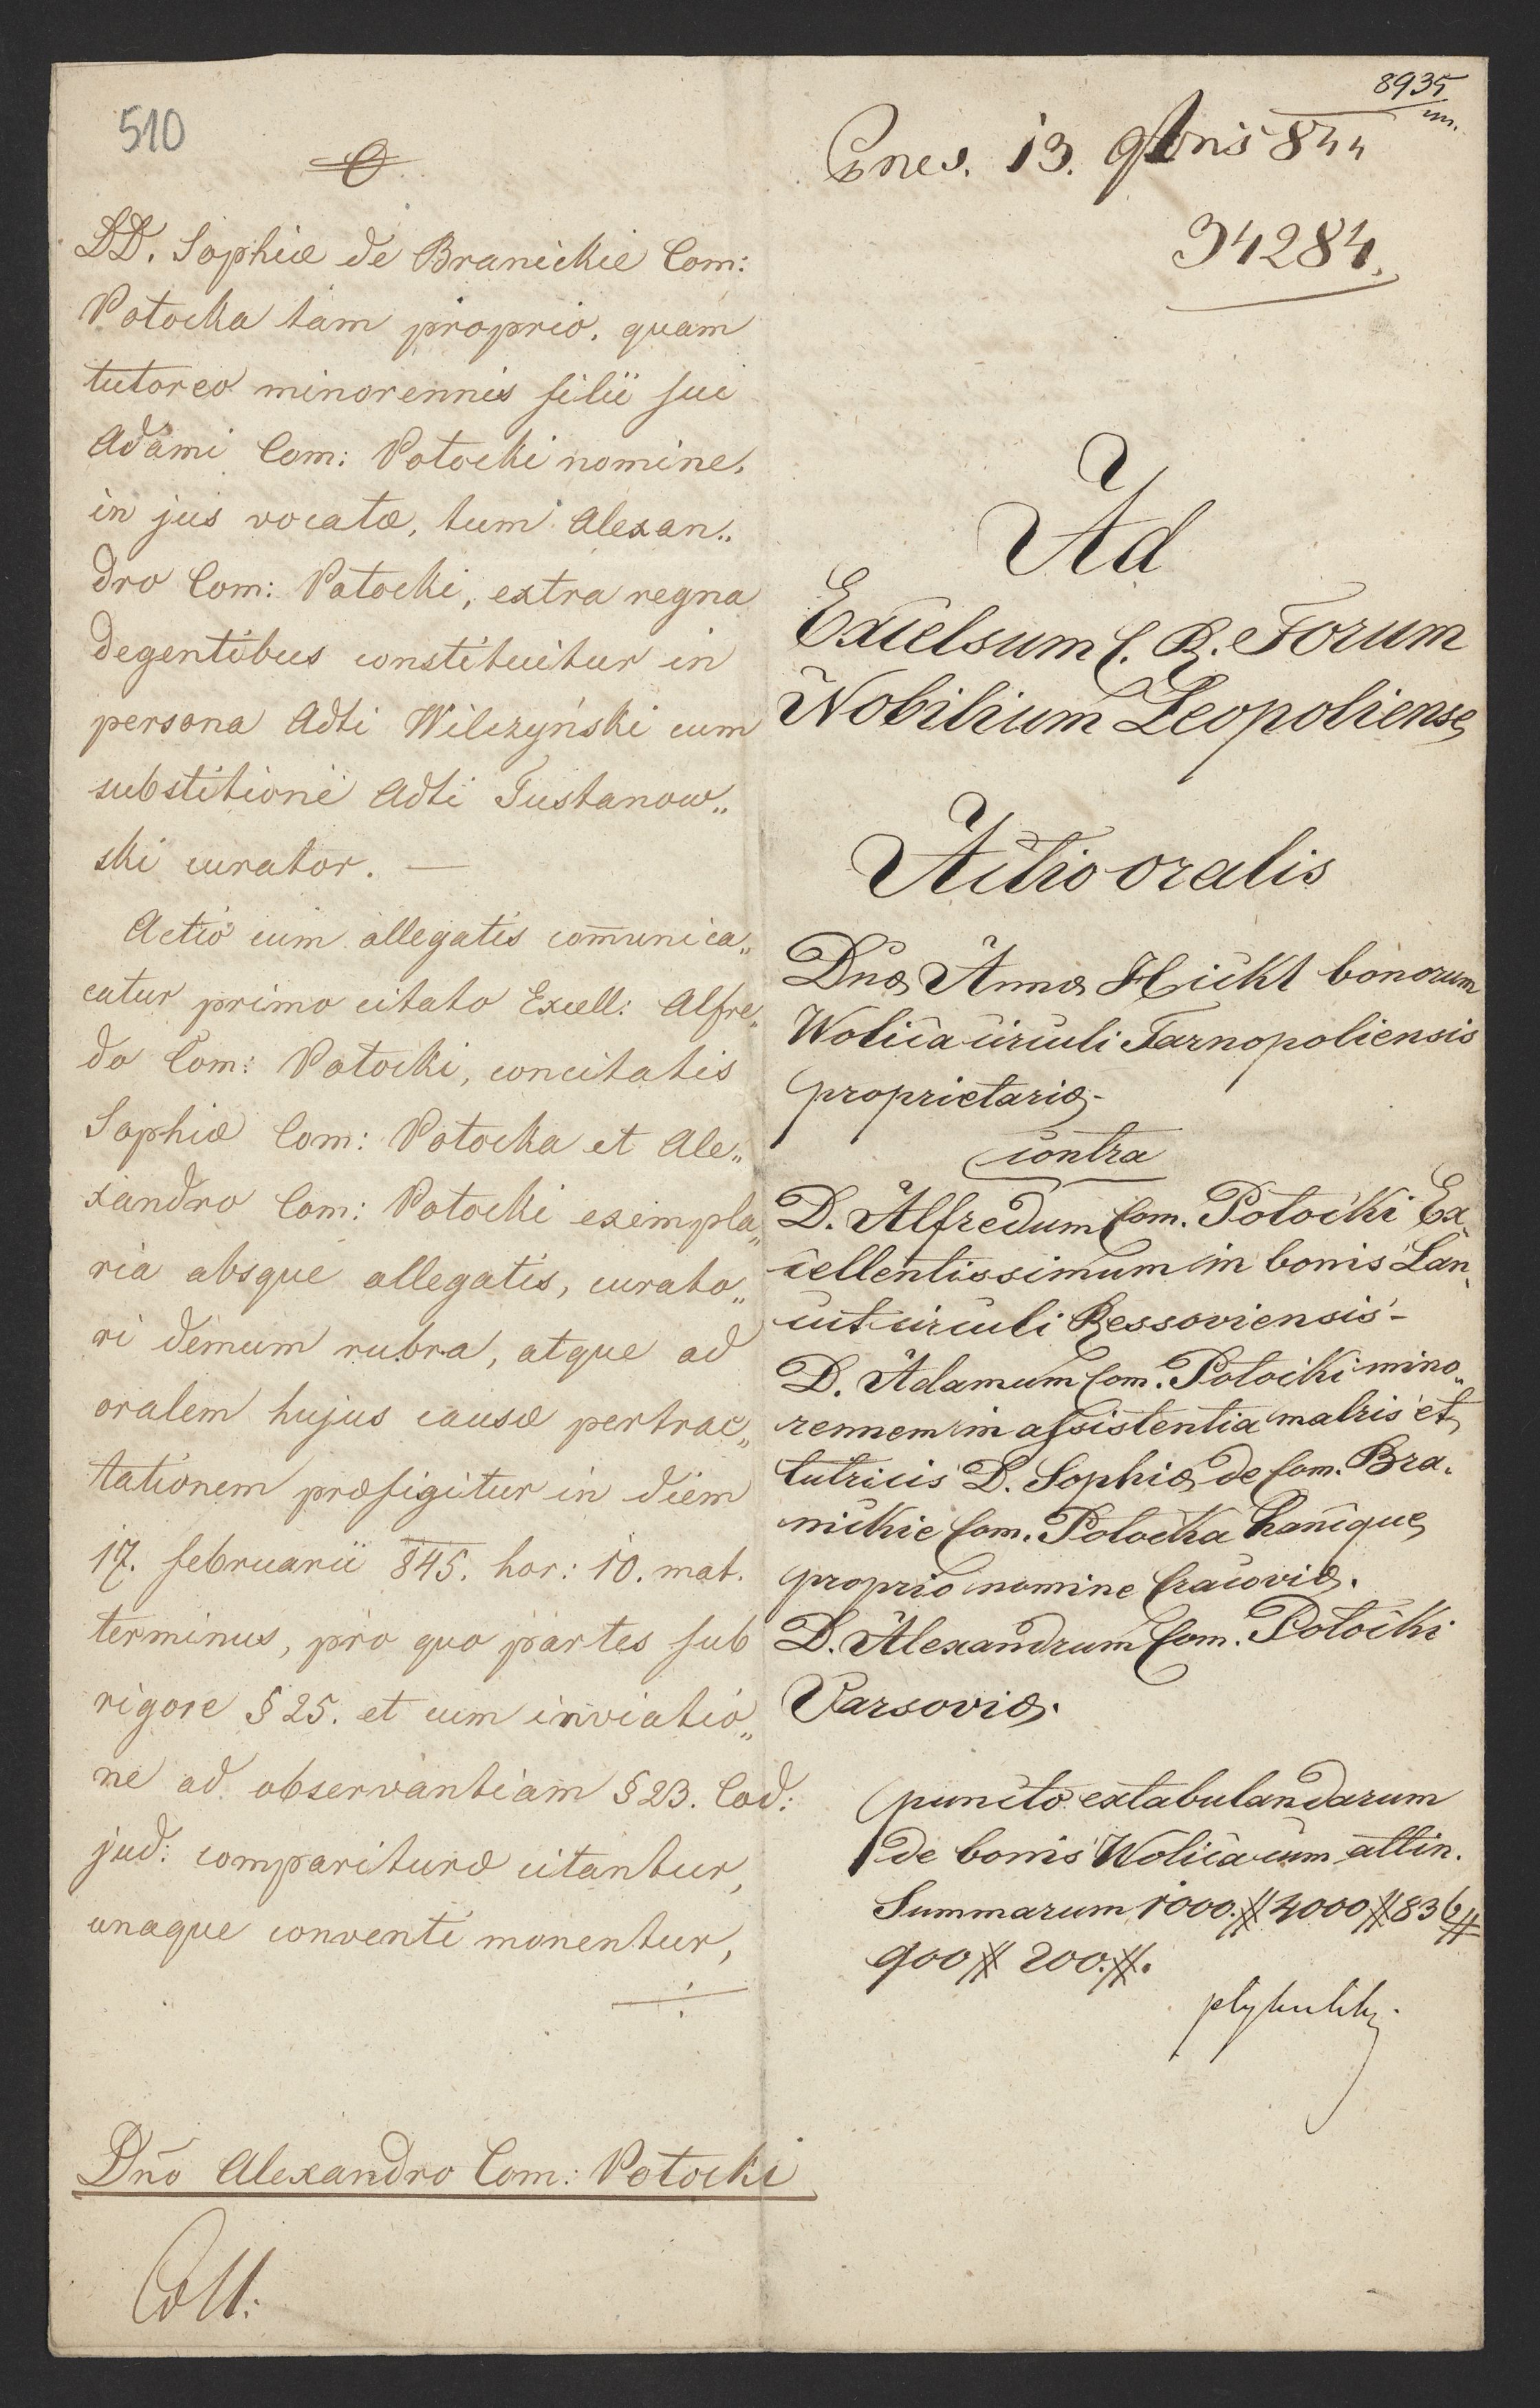 510
DD. Sophiæ de Branickie Com:
Potocka tam proprio, quam
tutoreo minorennis filii sui
Adami Com: Potocki nomine,
in jus vocatæ, tum Alexan„
dro Com: Potocki, extra regna
degentibus constituitur in
persona Adti Wilczyński cum
substitione Adti Tustanow„
ski curator. —
Actio cum allegatis com̄unica„
catur primo citato Excell: Alfre„
do Com: Potocki, concitatis
Sophiæ Com: Potocka et Ale„
xandro Com: Potocki exempla„
ria absque allegatis, curato„
ri demum rubra, atque ad
oralem hujus causæ pertrac„
tationem præfigitur in diem
17. februarii 845. hor: 10. mat.
terminus, pro quo partes sub
rigore § 25. et cum inviatio„
ne ad observantiam § 23. Cod:
jud: comparituræ citantur,
unaque conventi monentur,
÷
Dño Alexandro Com: Potocki
Coll:
8935
Pnes. 13. 9bris 844
34284.
Ad
Excelsum C. R. Forum
Nobilium Leopoliense
Actio oralis
Dnæ Annæ Hickl bonorum
Wolica circuli Tarnopoliensis
proprietariæ-
contra
D. Alfredum Com. Potocki Ex„
cellentissimum in bonis Lan„
cut circuli Ressoviensis-
D. Adamum Com. Potocki mino„
rennem in assistentia matris et
tutricis D. Sophiæ de Com. Bra„
nickie Com. Potocka hancque
proprio nomine Cracoviæ.
D. Alexandrum Com. Potocki
Varsoviæ.
puncto extabulandarum
de bonis Wolica cum attin.
Summarum 1000.# 4000 # 836 #
900 # 200.#.